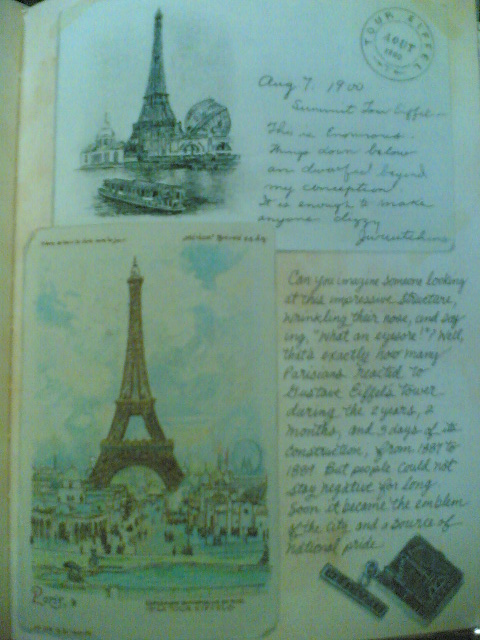 TOUR EIFFEL
AOUT
Aug 7. 1900
Summit Tour Eiffel
This is Enormous.
Things down below
are dwarfed beyond
my conception
It is enough to make
anyone dizzy
Can you imagine someone looking
at this impressive structure,
wrinkling their nose, and say
ing, "What an eyesore!"? Well,
that's exactly how many
Parisians reacted to
Gustave Eiffel's tower
during the 2 years, 2
months, and 5 days of its
construction, from 1887 to
1889. But people could not
stay negative for long.
Soon it became the emblem
of the city and a source of
national pride.
Paris